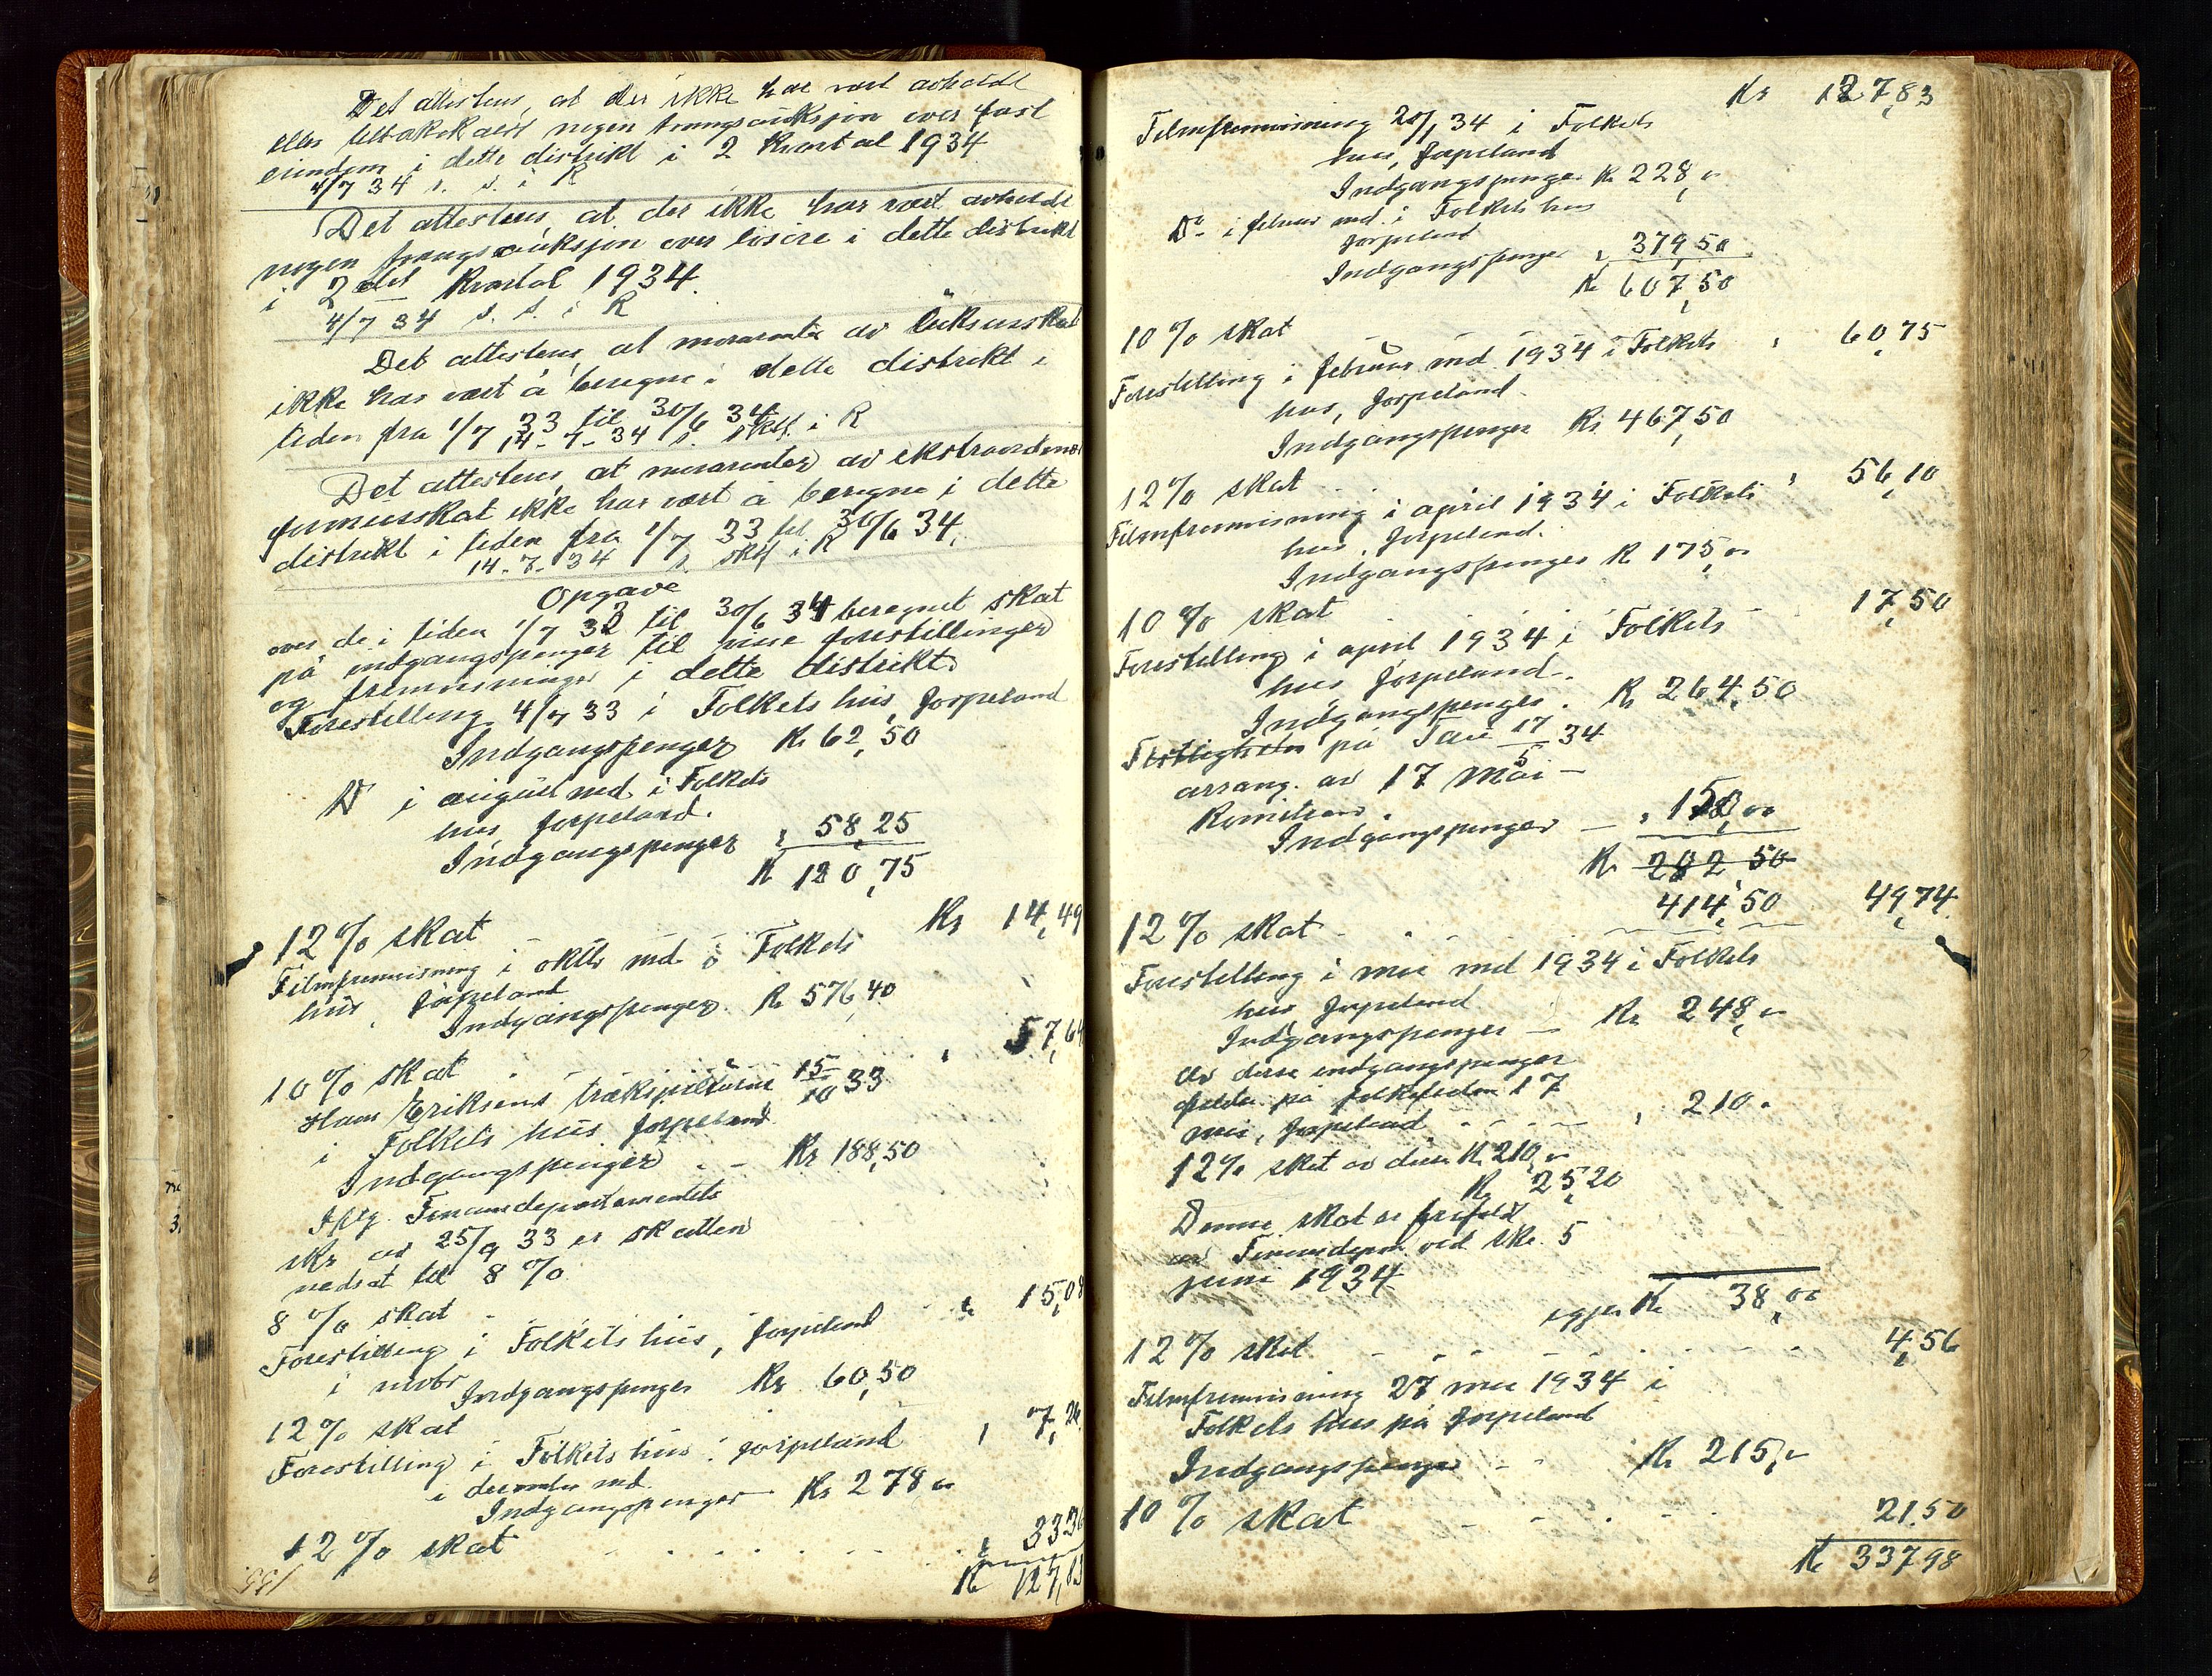 Det attesteres, at der ikke har vært avholdt
eller tilbakekaldt nogen tvangsauksjon over fast
eiendom i dette distrikt i 2 kvartal 1934
4/7 34 s. s. i R
Det attesteres, at der ikke har vært avholdt
nogen tvangsauksjon over løsøre i dette distrikt
i 2det kvartal 1934.
4/7 34 s. s. i R
Det attesteres, at morarenter av luksusskat
ikke har vært å beregne i dette distrikt i
tiden fra 1/7 33 til 30/6 34
14-7-34 s. sktf. i R
Det attesteres, at morarenter av ekstraordinær
formuesskat ikke har vært å beregne i dette
distrikt i tiden fra 1/7 33 til 30/6 34.
14-7-34 s. sktf i R
Opgave
over de i tiden 1/7 33 til 30/6 34 beregnet skat
på indgangspenger til hine forestillinger
og fremvisninger i dette distrikt.
Forestilling 4/7 33 i Folkets hus, Jørpeland
Indgangspenger Kr 62,50
Do i august md. i Folkets
hus Jørpeland.
Indgangspenger " 58,25
Kr 120,75
12 % skat Kr 14,49
Filmfremvisning i oktbr md. i Folkets
hus, Jørpeland
Indgangspenger Kr 576,40
10 % skat " 57,64
Hans Eriksens trækspilturne 15/10 33
i Folkets hus Jørpeland
Indgangspenger - - Kr 188,50
Iflg. Finansdepartementets
skr av 25/9 33 er skatten
nedsat til 8 %
8 % skat - " 15,08
Forestilling i Folkets hus, Jørpeland
i novbr
Indgangspenger Kr 60,50
12 % skat " 7,26
Forestilling i Folkets hus, Jørpeland
i desember md.
Indgangspenger Kr 278,00
12 % skat " 33,36
Kr 127,83
Kr 127,83
Filmfremvisning 20/1 34 i Folkets
hus, Jørpeland
Indgangspenger Kr 228,00
Do i februar md. i Folkets hus
Jørpeland
Indgangspenger " 379,50
Kr 607,50
10 % skat - " 60,75
Forestilling i februar md 1934 i Folkets
hus, Jørpeland.
Indgangspenger Kr 467,50
12 % skat " 56,10
Filmfremvisning i april 1934 i Folkets
hus, Jørpeland.
Indgangspenger Kr 175,00
10 % skat - 17,50
Forestilling i april 1934 i Folkets
hus Jørpeland.
Indgangspenger. Kr 264,50
Festligheten på Tau 17/5 34
arrang. av 17 Mai-
Komiteen.
Indgangspenger - " 150,00
Kr 282,50
414,50
12 % skat 49,74
Forestilling i mai md 1934 i Folkets
hus Jørpeland
Indgangspenger - Kr 248,00
Av disse indgangspenger
falder på folkefesten 17
mai, Jørpeland - - - " 210.
12% skat av disse Kr 210,00
Kr 25,20
Denne skat er frafaldt
av Finansdepart. ved skr. 5
juni 1934
igjen Kr 38,00
12 % skat - - - 4,56
Filmfremvisning 27 mai 1934 i
Folkets hus på Jørpeland
Indgangspenger - - Kr 215,00
10 % skat - - - 21,50
Kr 337,98